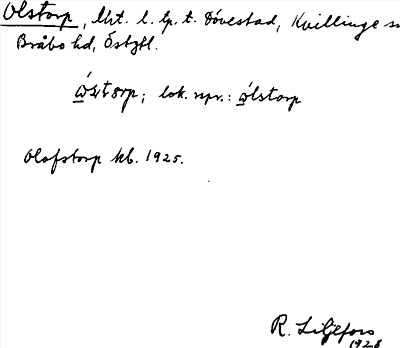 Olstorp, lht. l. lp. t. Dövestad, Kvillinge
Bråbo hd, Östgtl.
lok. upr.: ώ̲lstorp
Olofstorp kb. 1925.
R. Liljefors
1928